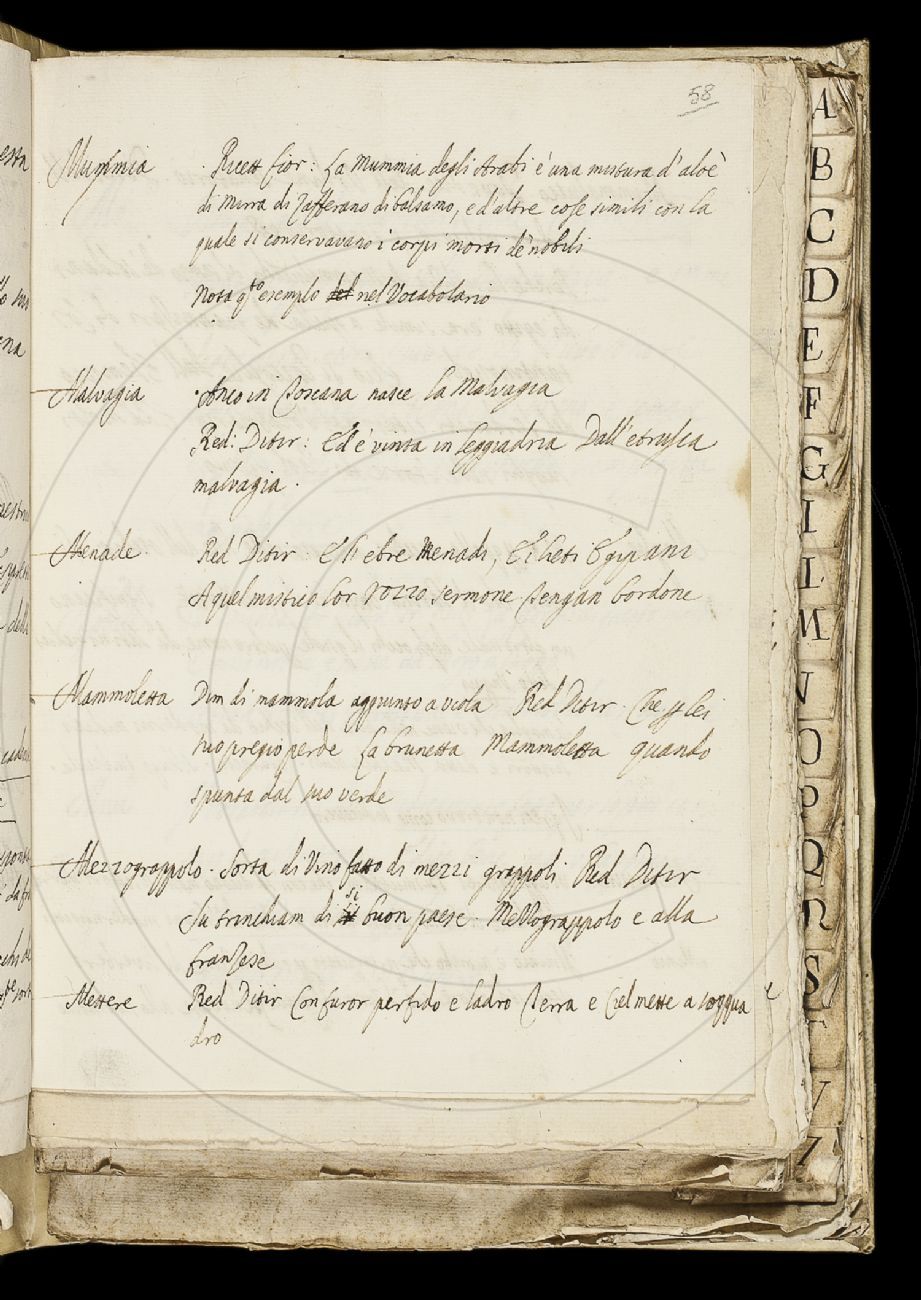 58
Mummia . Ricett fior: La Mummia degli Arabi è una mistura d'aloè
di Mirra di Zafferano di balsamo, e d'altre cose simili con la
quale si conservavano i corpi morti de' nobili
Nota q.to esemplo del nel Vocabolario
Malvagia . Anco in Toscana nasce la Malvagia
Red: Ditir: Ed è vinta in leggiadria Dall'etrusca
malvagia .
Menade Red Ditir E l'ebre Menadi, E i lieti Egipani
A quel mistico lor rozzo sermone Tengan bordone
Mammoletta Dim di mammola aggiunto a viola Red Ditir. Che
suo pregio perde La brunetta Mammoletta quando
spunta dal suo verde
Mezzograppolo . Sorta di Vino fatto di mezzi grappoli Red Ditir
Su trinchiam di si buon paese Mezzograppolo e alla
franzese
Mettere Red Ditir Con furor perfido e ladro Terra e Ciel mette a soqqua
dro
A
B
C
D
E
F
G
I
L
M
N
O
P
Q
R
S
T
V
Z